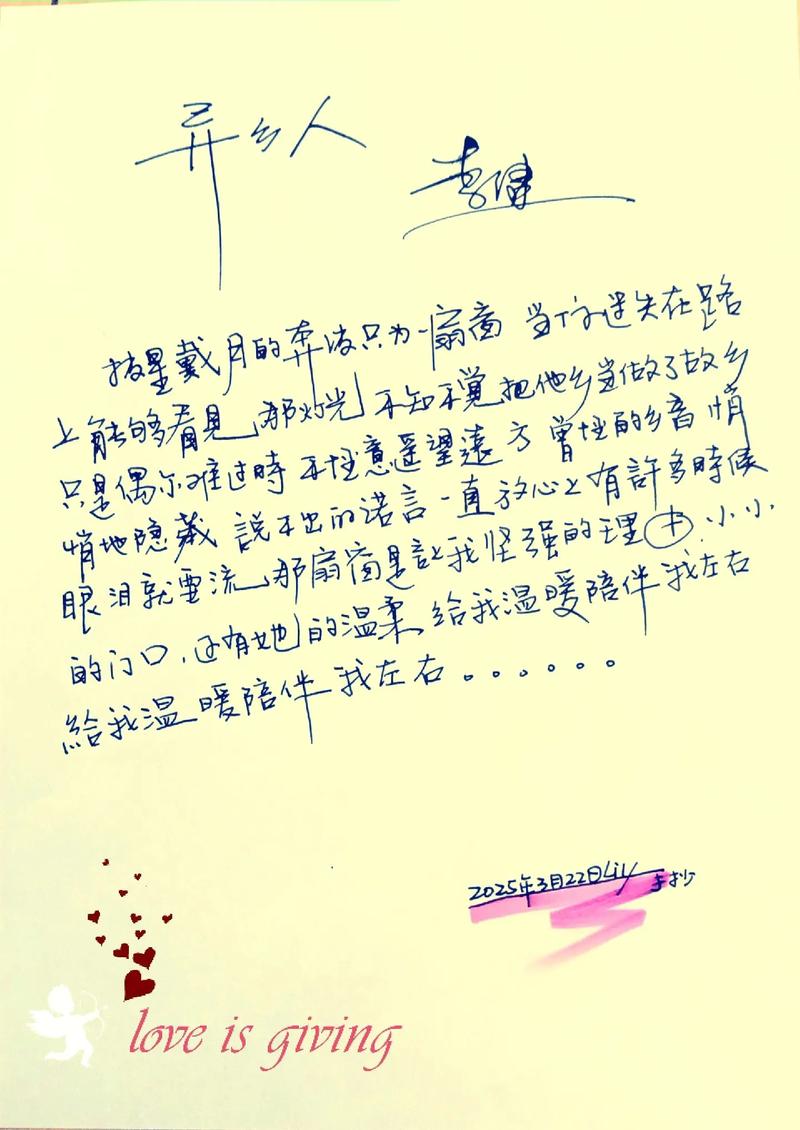 异乡人
李健
披星戴月的奔波只为一扇窗 当你迷失在路
上能够看見那灯光 不知不覚把他乡当做了故乡
只是偶尔难过時 不经意遥望遠方 曾经的乡音 悄
悄地隐藏 説不出的诺言一直放心上 有許多時候
眼泪就要流 那扇窗是让我坚强的理由.小小
的门口,还有她的温柔 給我温暖陪伴我左右
給我温暖陪伴我左右。。。。。。
2025年3月22日Lily手抄
love is giving